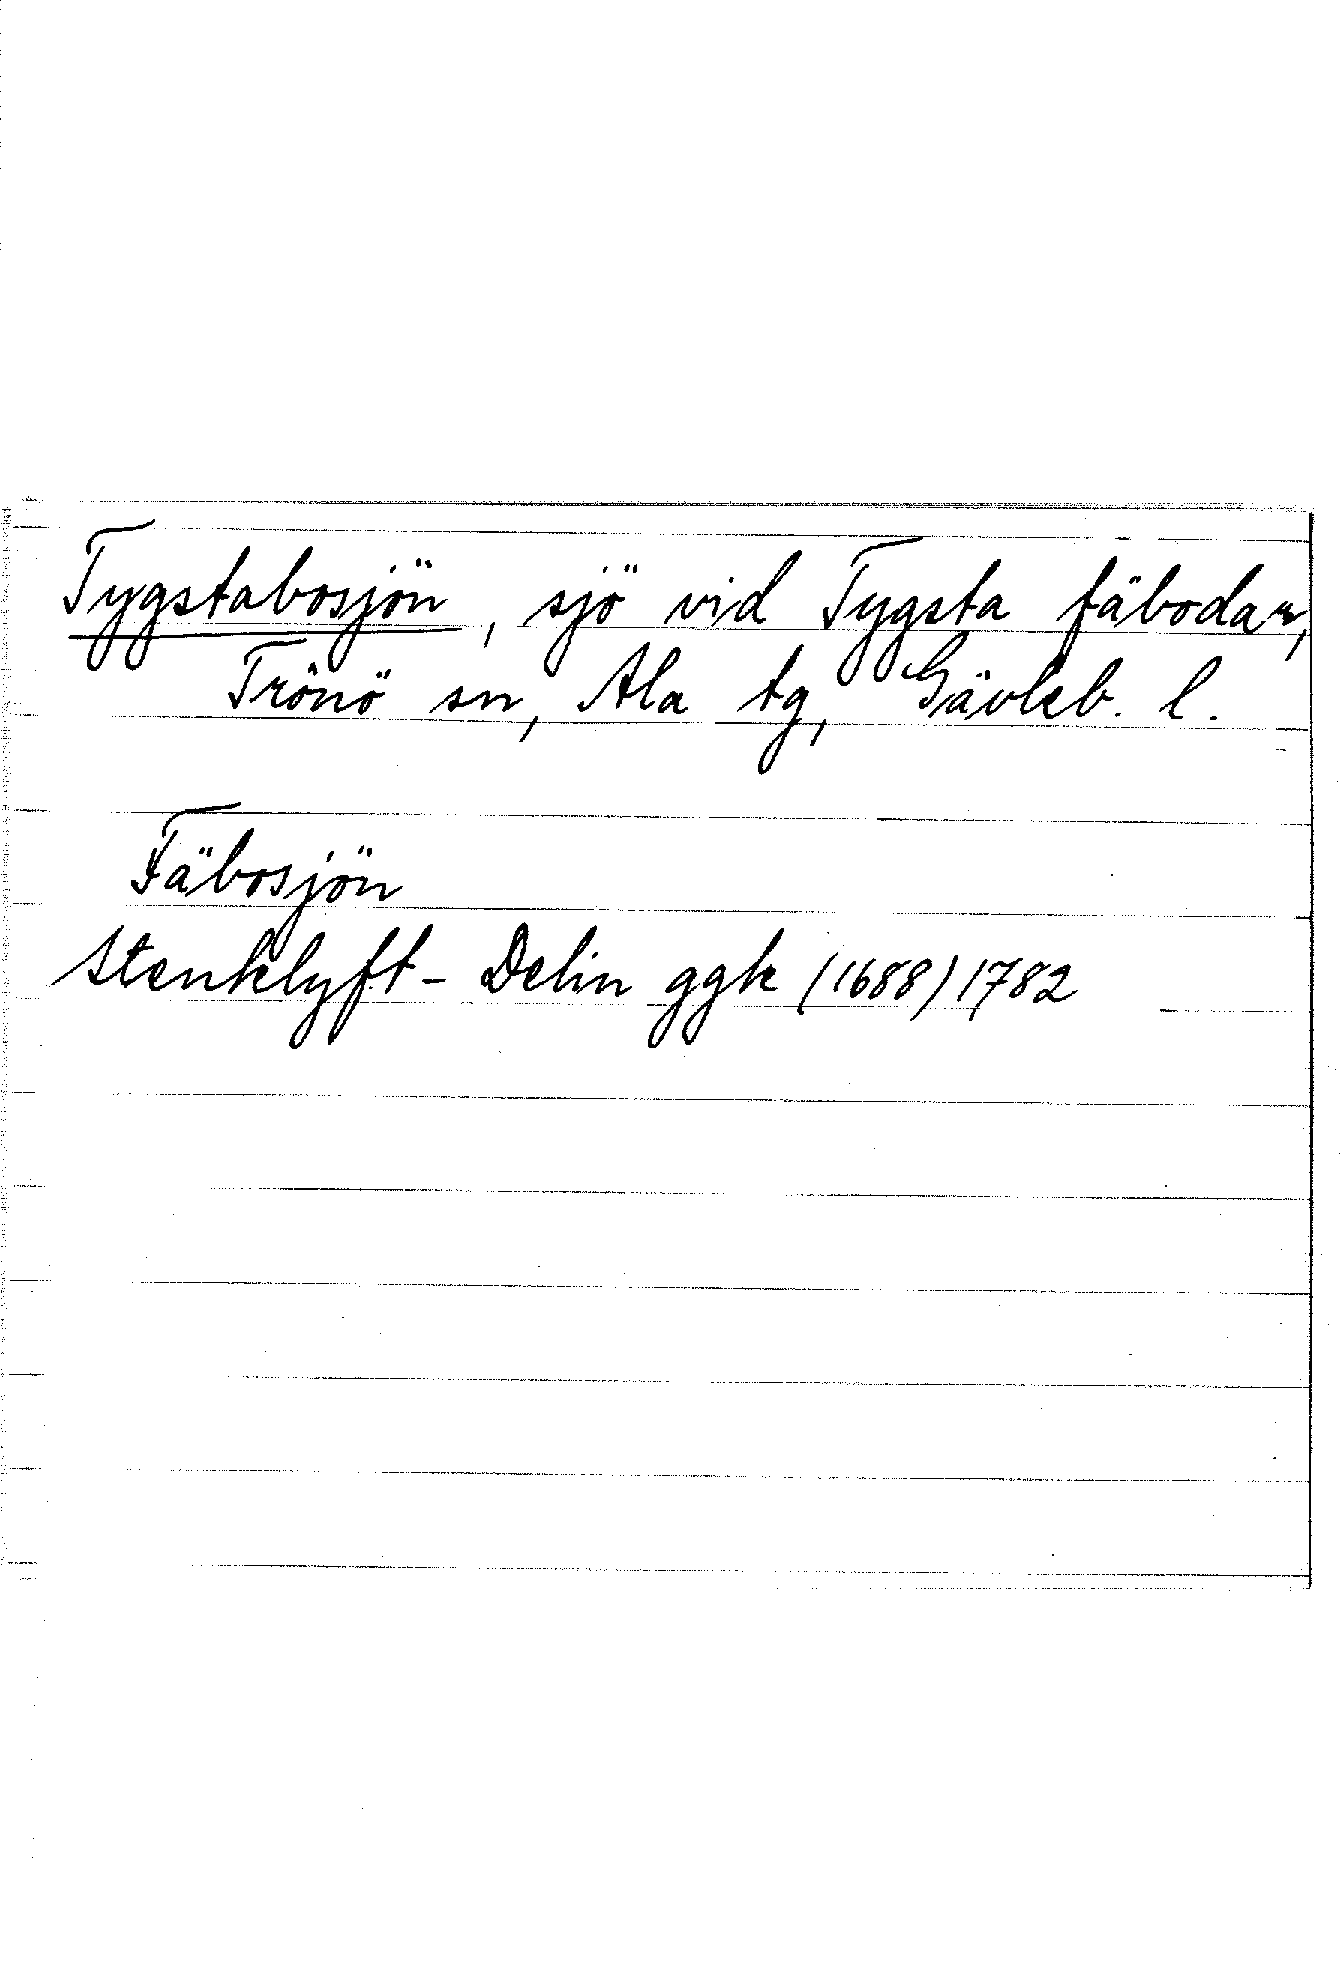 Tygstabosjön, sjö vid Tygsta fäbodar,
Trönö sn, Ala tg, Gävleb. l.
Fäbosjön
Stenklyft - Delin ggk (1688) 1782